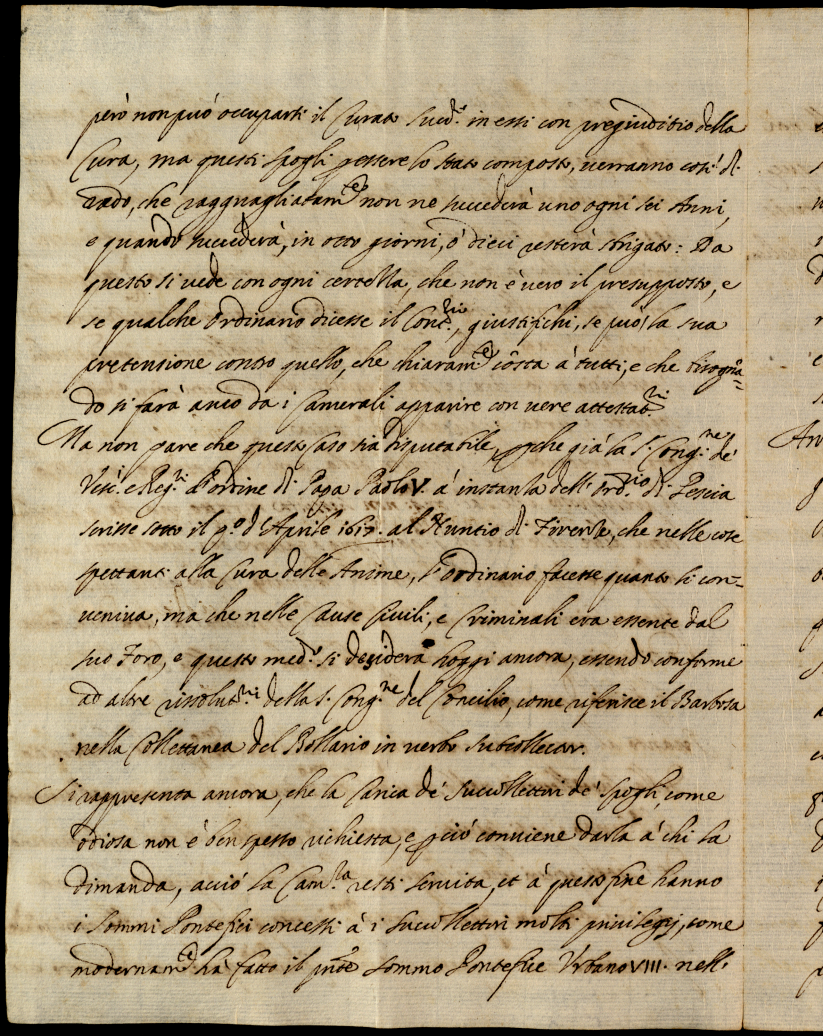 però non può occuparsi il Curato Sud.º in essi con pregiuditio della
Cura, ma questi spogli p essere lo stato composto, uerranno così di
rado, che ragguagliatam.te non ne succederà uno ogni sei Anni,
e quando succederà, in otto giorni, ò dieci resterà sbrigato: Da
questo si uede con ogni certezza, che non è uero il presupposto, e
se qualche Ordinario dicesse il Cont.rio, giustifichi, se può, la sua
pretensione contro quello, che chiaram.te cōsta à tutti; e che bisognā=
do si farà anco da i Camerali apparire con uere attestat.ni
Ma non pare che questo Caso sia disputabile, pche già la S. Cong.ne de'
Vesc.i e Reg.ri d'ordine di Papa Paolo V. à instanza dell'Ord.rio di Pescia
scrisse sotto il p.º d'Aprile al Nuntio di Firenze, che nelle cose
spettanti alla Cura delle Anime, l'ordinario facesse quanto li con-
ueniua, ma che nelle Cause Ciuili, e Criminali era essente dal
suo Foro, e questo med.º si desidera hoggi ancora, essendo conforme
ad altre rissolut.ni della S. Cong.ne del Concilio, come riferisce il Barbosa
nella Collettanea del Bollario in uerbo Subcollector.
Si rappresenta ancora, che la Carica de' Succollettori de' spogli, come
odiosa non è ben spesso richiesta, e pciò conuiene darla à chi la
dimanda, acciò la Cam.ra resti seruita, et à questo fine hanno
i Sommi Pontefici concessi à i Succollettori molti priuilegij, come
modernam.te hà fatto il pnte Sommo Pontefice Vrbano VIII. nell'